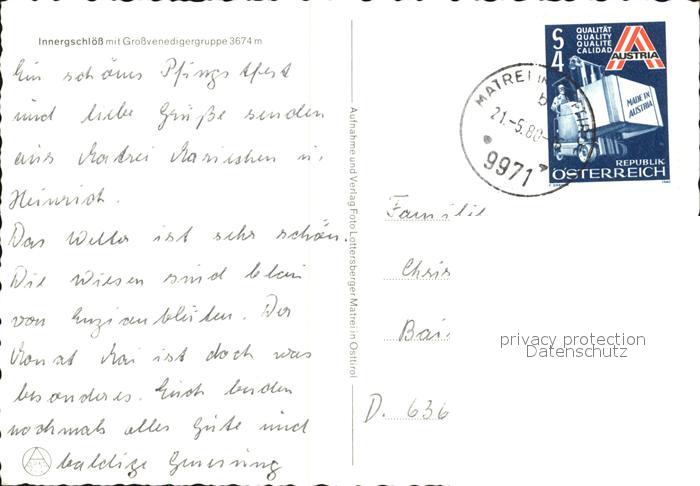 Innergschlöß mit Großvenedigergruppe 3674 m
Ein schönes Pfingstfest
und liebe Grüße senden
aus Matrei Mariechen u.
Heinrich.
Das Wetter ist sehr schön.
Die Wiesen sind blau
von Enzianblüten. Der
Monat Mai ist doch was
besonderes. Euch beiden
nochmals alles Gute und
baldige Genesung
Aufnahme und Verlag Foto Lottersberger Matrei in Osttirol
MATREI IN OSTTIROL
b
21.-5.80
9971
S 4
QUALITÄT
QUALITY
QUALITE
CALIDAD
AUSTRIA
MADE IN
AUSTRIA
REPUBLIK
ÖSTERREICH
Familie
Chris
Bai
D. 636
privacy protection
Datenschutz